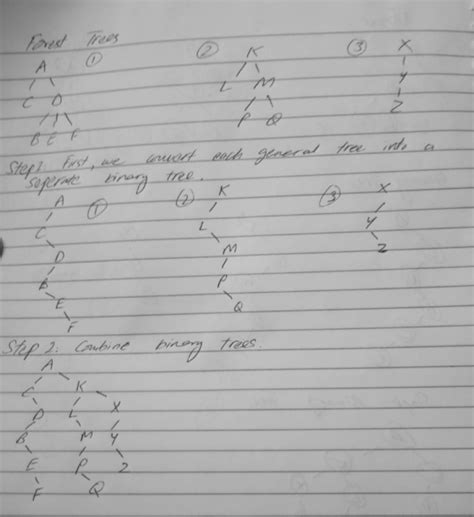 Forest Trees
① ② K ③ X
A
L M Y
C D
P Q Z
B E F
Step 1. First, we convert each general tree into a
seperate binary tree.
A ① ② K ③ X
C L Y
D M Z
B P
E Q
F
Step 2: Combine binary trees.
A
C K
D L X
B M Y
E P Z
F Q